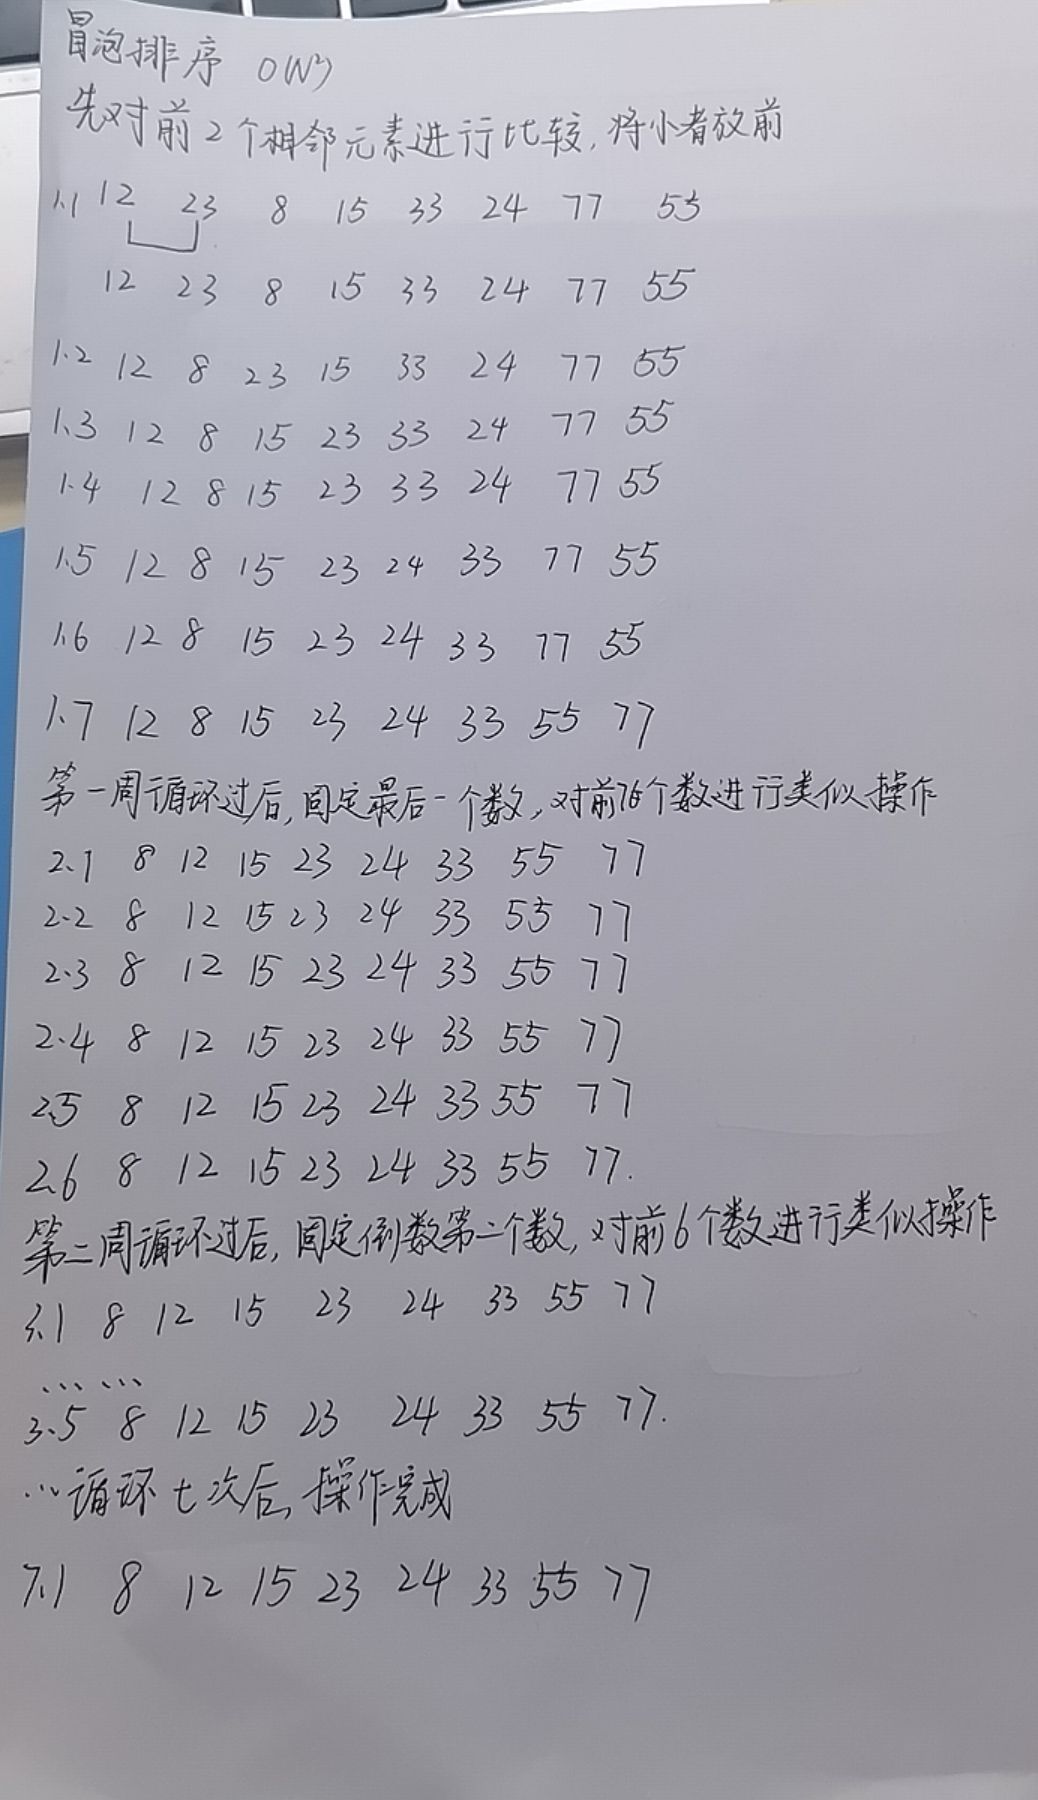 冒泡排序 O(N²)
先对前2个相邻元素进行比较,将小者放前
1.1 12 23 8 15 33 24 77 55
12 23 8 15 33 24 77 55
1.2 12 8 23 15 33 24 77 55
1.3 12 8 15 23 33 24 77 55
1.4 12 8 15 23 33 24 77 55
1.5 12 8 15 23 24 33 77 55
1.6 12 8 15 23 24 33 77 55
1.7 12 8 15 23 24 33 55 77
第一周循环过后,固定最后一个数,对前7个数进行类似操作
2.1 8 12 15 23 24 33 55 77
2.2 8 12 15 23 24 33 55 77
2.3 8 12 15 23 24 33 55 77
2.4 8 12 15 23 24 33 55 77
2.5 8 12 15 23 24 33 55 77
2.6 8 12 15 23 24 33 55 77.
第二周循环过后,固定倒数第二个数,对前6个数进行类似操作
3.1 8 12 15 23 24 33 55 77
……
3.5 8 12 15 23 24 33 55 77.
…循环七次后,操作完成
7.1 8 12 15 23 24 33 55 77